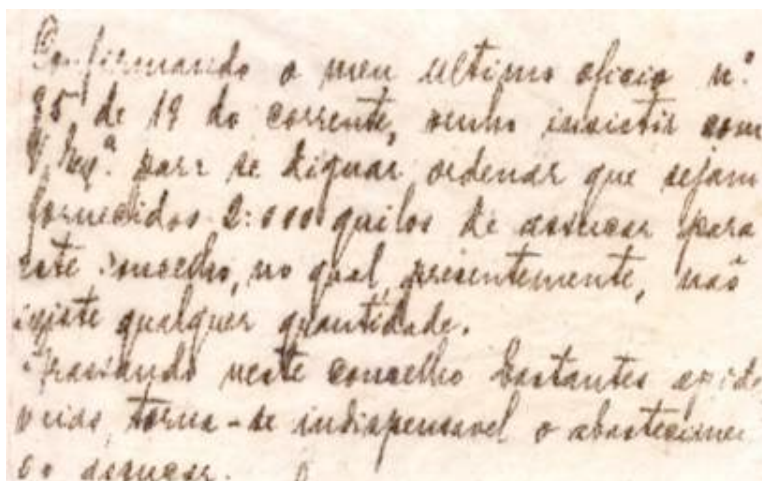 Confirmando o meu ultimo oficio n.º
95, de 19 do corrente, venho insistir com
V. Exª. para se dignar ordenar que sejam
fornecidos 2:000 quilos de assucar para
este concelho, no qual, presentemente, não
existe qualquer quantidade.
Grassando neste concelho bastantes epide
mias, torna-se indispensavel o abastecimen
assucar.